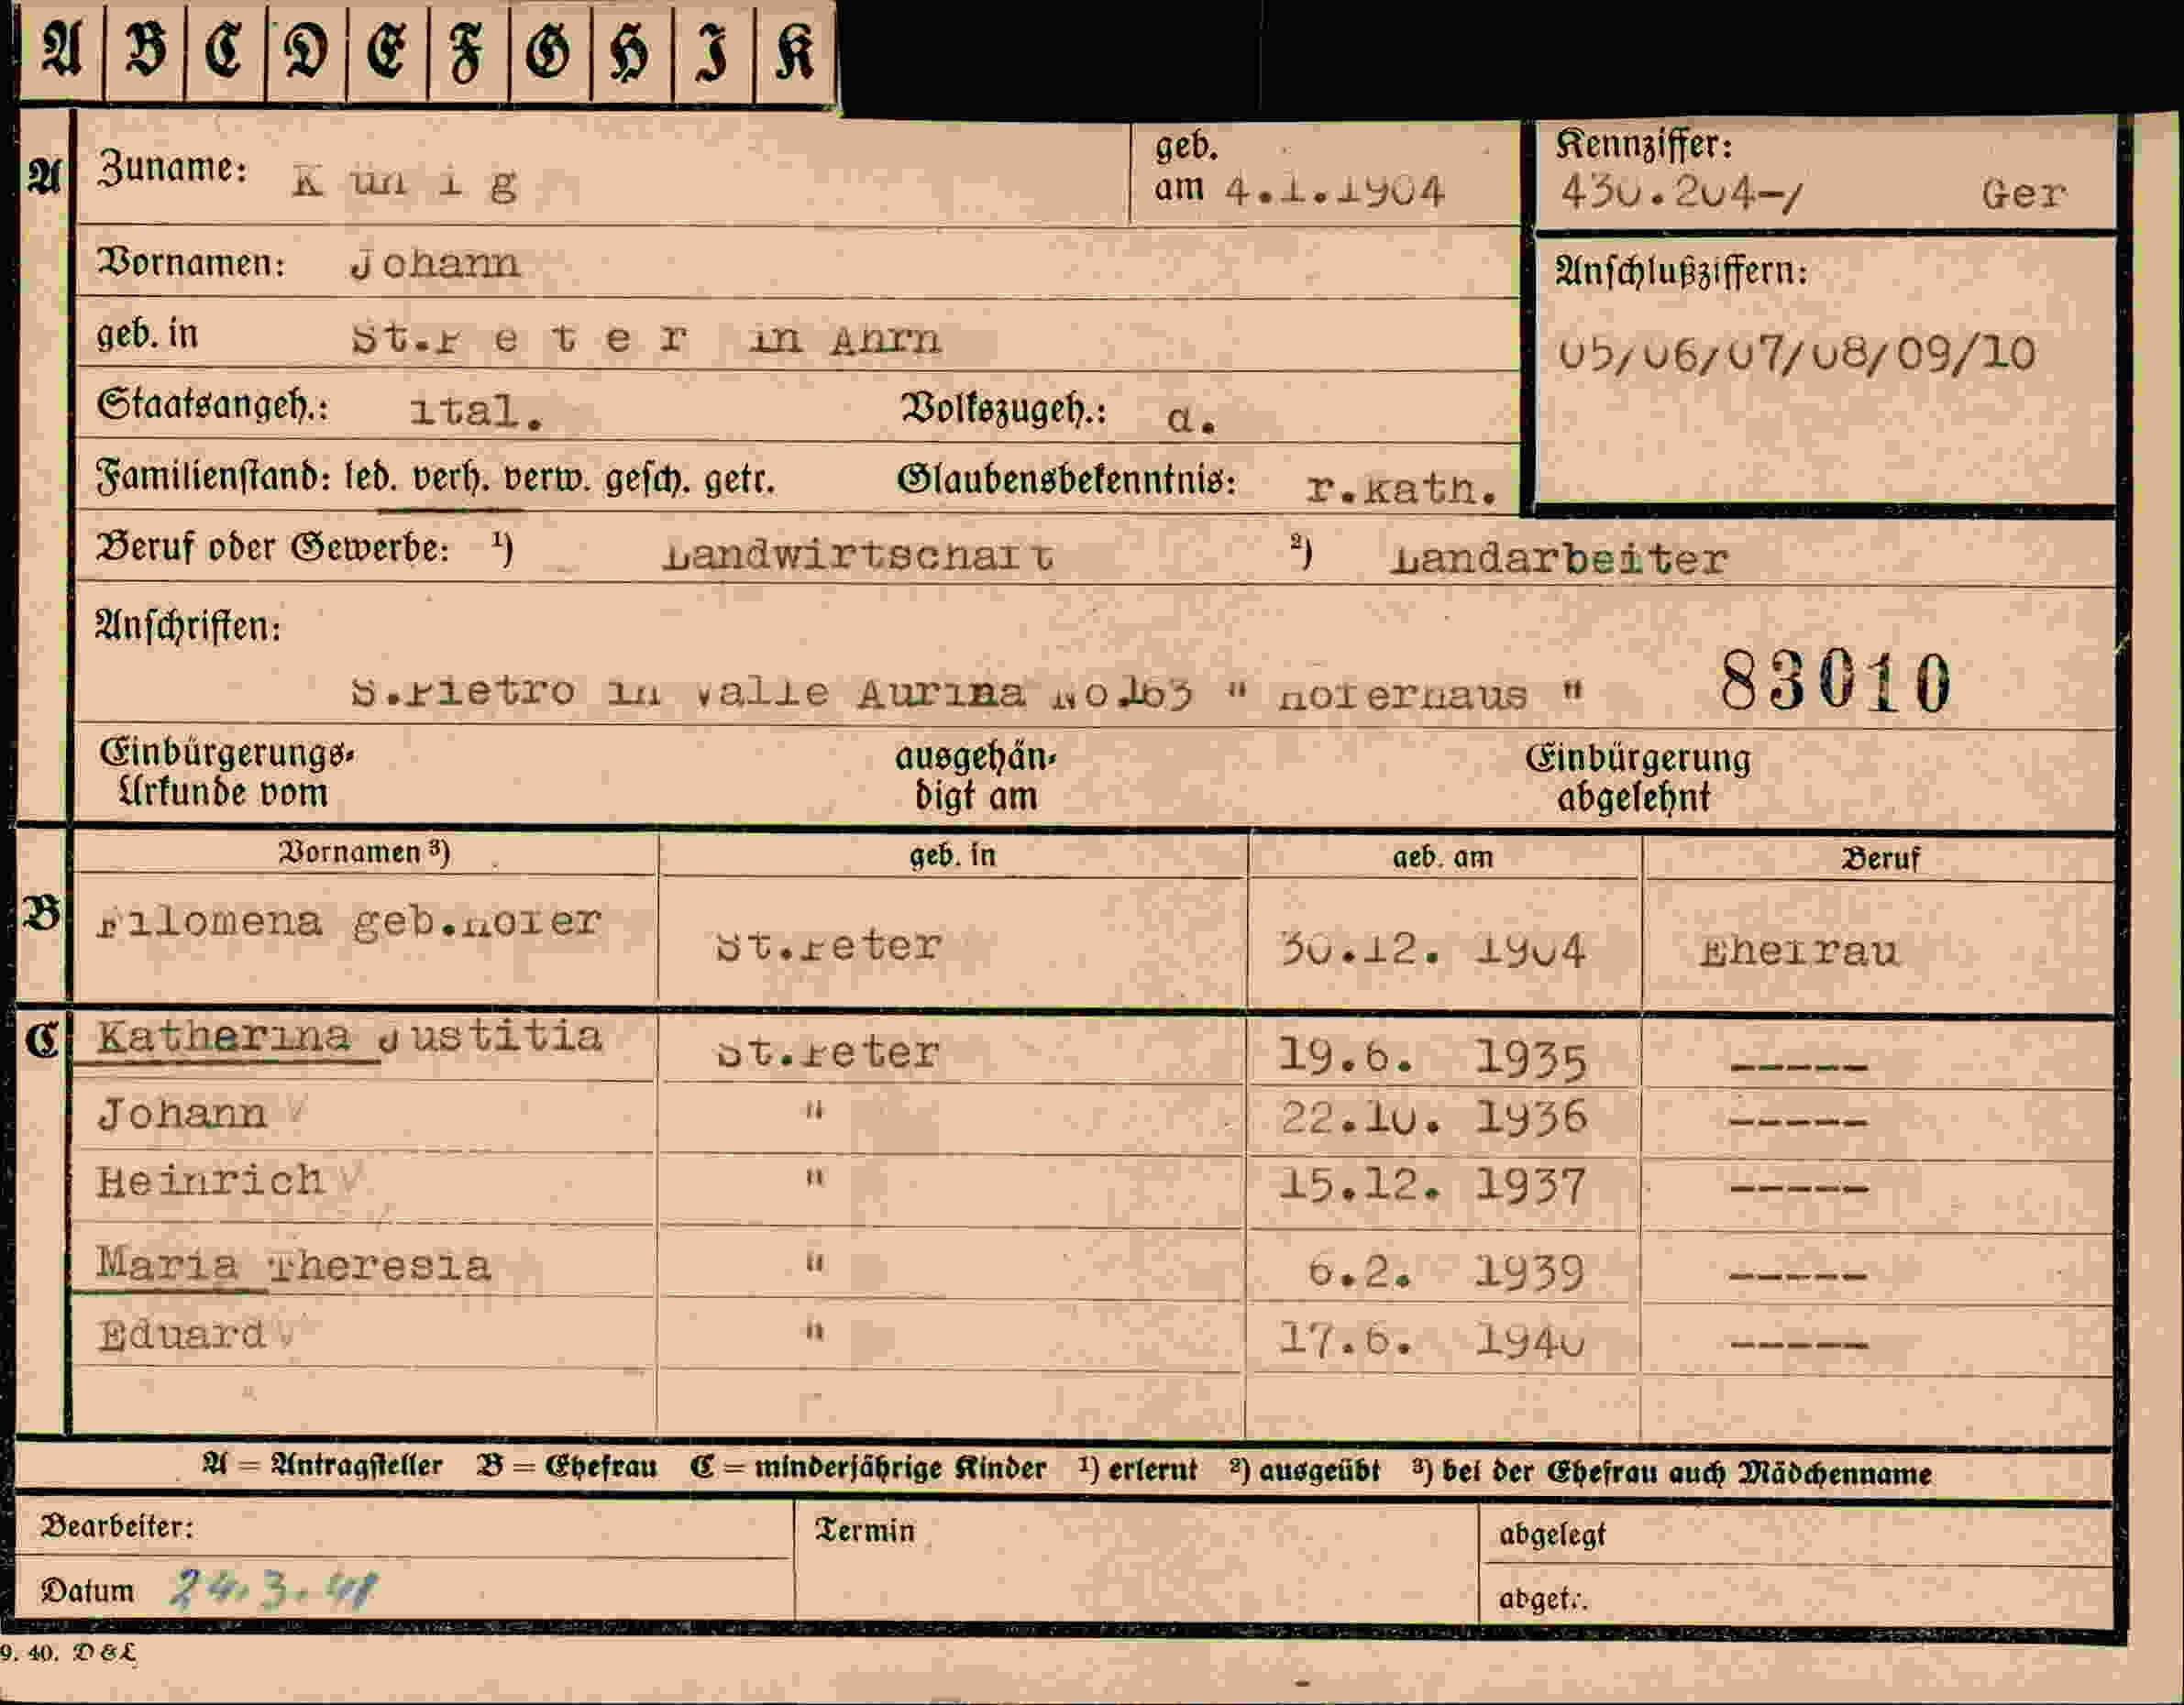 A B C D E F G H I K
A Zuname: K ü n i g geb. am 4.1.1904 Kennziffer: 430.204-/ Ger
Vornamen: Johann Anschlußziffern:
geb. in St.P e t e r in Ahrn 05/06/07/08/09/10
Staatsangeh.: ital. Volkszugeh.: d.
Familienstand: led. verh. verw. gesch. getr. Glaubensbekenntnis: r.kath.
Beruf oder Gewerbe: 1) Landwirtschaft 2) Landarbeiter
Anschriften:
S.Pietro in Valle Aurina No.163 " Hoferhaus " 83010
Einbürgerungs- Urkunde vom ausgehän- digt am Einbürgerung abgelehnt
Vornamen 3) geb. in geb. am Beruf
B Filomena geb.Hofer St.Peter 30.12. 1904 Ehefrau
C Katherina Justitia St.Peter 19.6. 1935 -----
Johann " 22.10. 1936 -----
Heinrich " 15.12. 1937 -----
Maria Theresia " 6.2. 1939 -----
Eduard " 17.6. 1940 -----
A = Antragsteller B = Ehefrau C = minderjährige Kinder 1) erlernt 2) ausgeübt 3) bei der Ehefrau auch Mädchenname
Bearbeiter: Termin abgelegt
Datum 24.3.41 abget.:
9. 40. D&L